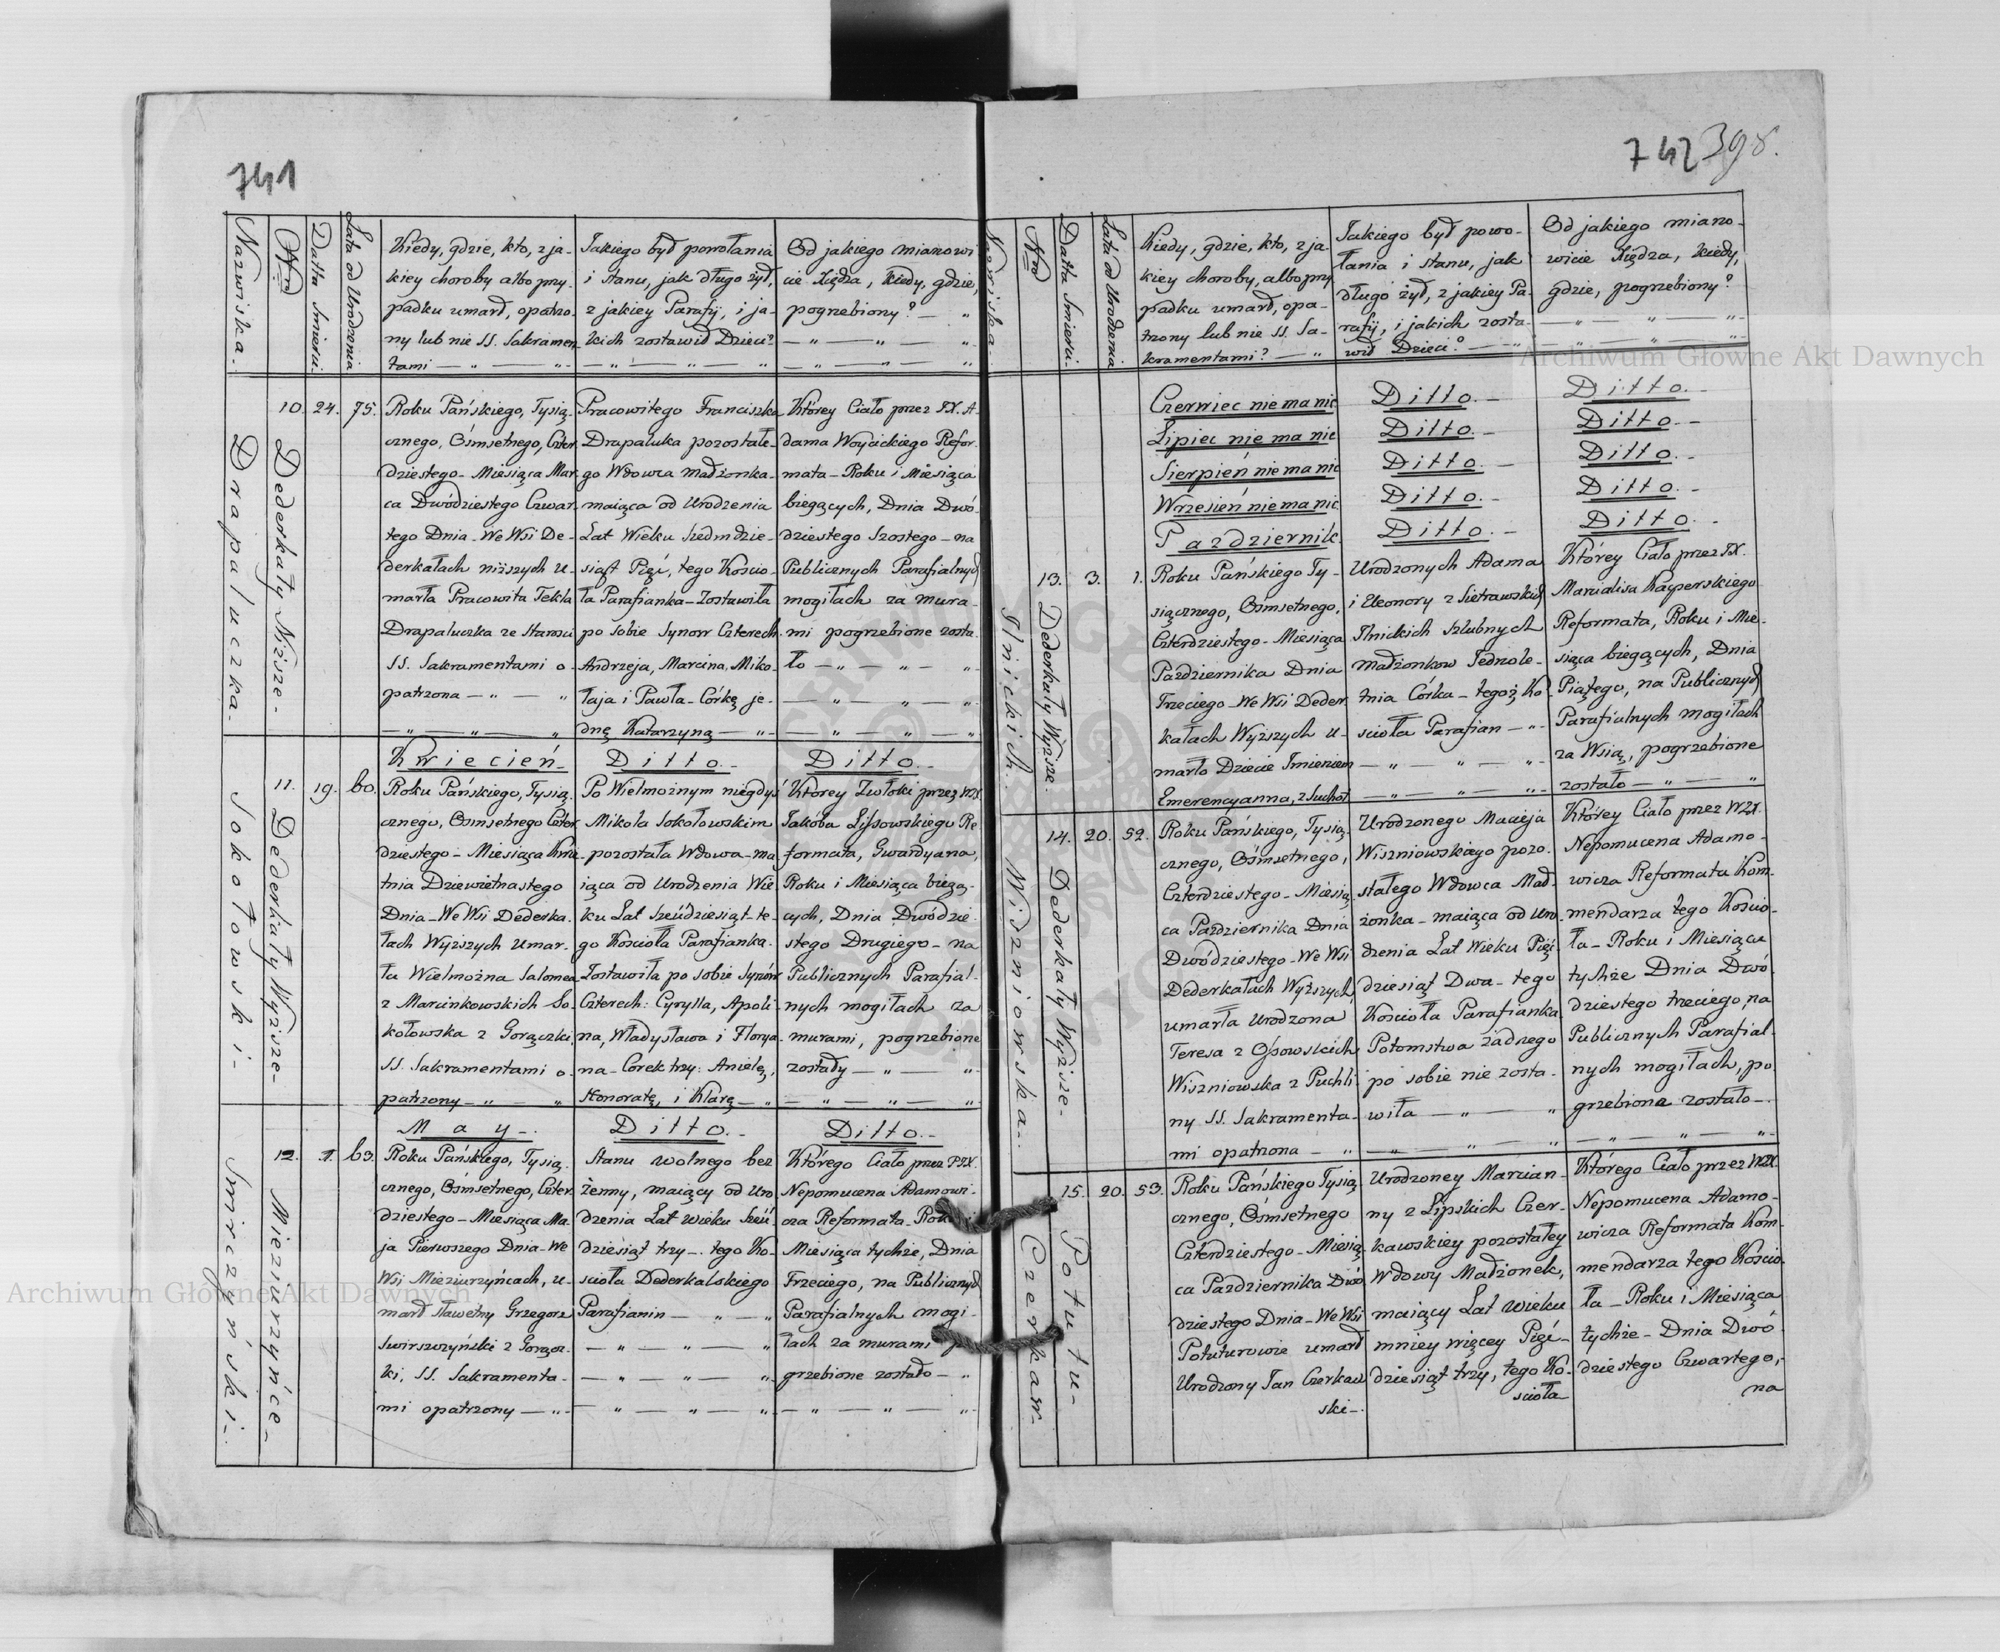 741
Nazwiska.
Nro
Datta Smierci.
Lata od Urodzenia
Kiedy, gdzie, kto, z ja-
kiey choroby albo przy-
padku umarł, opatrzo-
ny lub nie SS. Sakramen-
tami — „ — „
Jakiego był powołania
i stanu, jak długo żył,
z jakiey Parafij, i ja-
kich zostawił Dzieci?
Od jakiego mianowi
cie Xiędza, kiedy, gdzie,
pogrzebiony? — „
Drapaluczka.
10.
Dederkały Niższe
24.
75.
Roku Pańskiego, Tysią-
cznego, Ośmsetnego, Czter-
dziestego - Miesiąca Mar-
ca Dwódziestego Czwar-
tego Dnia - We Wsi De-
derkałach niższych u-
marła Pracowita Tekla
Drapaluczka ze Starości
SS. Sakramentami o-
patrzona — „ — „
Pracowitego Franciszka
Drapaluka pozostałe-
go Wdowca małżonka
maiąca od Urodzenia
Lat Wieku Siedmdzie-
siąt Pięć, tego Kościo-
ła Parafianka - Zostawiła
po sobie Synow Czterech
Andrzeja, Marcina, Miko-
łaja i Pawła - Córkę je-
dnę Katarzynę — „
Którey Ciało przez JX. A-
dama Woycickiego Refor-
mata - Roku i Miesiąca
biegących, Dnia Dwó-
dziestego Szostego - na
Publicznych Parafialnych
mogiłach za mura-
mi pogrzebione zosta-
ło — „ — „
Kwiecień
Ditto.
Ditto.
Sokołowski
11.
Dederkały Wyższe
19.
60.
Roku Pańskiego, Tysią-
cznego, Osmsetnego Czter-
dziestego - Miesiąca Kwie-
tnia Dziewietnastego
Dnia - We Wsi Dederka-
łach Wyższych Umar-
ła Wielmożna Salomea
z Marcinkowskich So-
kołowska z Gorączki
SS. Sakramentami o-
patrzony — „ — „
Po Wielmożnym niegdyś
Mikoła Sokołowskim
pozostała Wdowa - ma-
iąca od Urodzenia Wie-
ku Lat Sześdziesiąt - te-
go Kościoła Parafianka.
Zostawiła po sobie Synów
Czterech: Cyrylla, Apoli-
na, Władysława i Florya-
na - Corek trzy: Anielę,
Honoratę, i Klarę — „
Którey Zwłoki przez WJX.
Jakóba Lissowskiego Re-
formata, Gwardyana,
Roku i Miesiąca biegą-
cych, Dnia Dwódzie-
stego Drugiego - na
Publicznych Parafial-
nych mogiłach za
murami, pogrzebione
zostały — „ — „
May
Ditto.
Ditto.
Smirczyński
12.
Mieziurzyńce
1.
63.
Roku Pańskiego, Tysią-
cznego, Osmsetnego, Czter-
dziestego - Miesiąca Ma-
ja Pierwszego Dnia - We
Wsi Mieziurzyńcach, u-
marł sławetny Grzegorz
Swirszczyński z Gorącz-
ki, SS. Sakramenta-
mi opatrzony — „
Stanu wolnego bez
żenny, maiący od Uro-
dzenia Lat wieku Sześ-
dziesiąt trzy - tego Ko-
ścioła Dederkalskiego
Parafianin — „ — „
Którego Ciało przez PJX.
Nepomucena Adamowi-
cza Reformata - Roku i
Miesiąca tychże, Dnia
Trzeciego, na Publicznych
Parafialnych mogi-
łach za murami po-
grzebione zostało — „
742 398.
Nazwiska.
Nro
Datta Smierci.
Lata od Urodzenia
Kiedy, gdzie, kto, z ja-
kiey choroby, albo przy
padku umarł, opa-
trzony lub nie SS. Sa-
kramentami? — „
Jakiego był powo-
łania i stanu, jak
długo żył, z jakiey Pa-
rafij, i jakich zosta-
wił Dzieci? — „
Od jakiego miano-
wicie Xiędza, kiedy,
gdzie, pogrzebiony?
Czerwiec nie ma nic
Ditto.
Ditto.
Lipiec nie ma nic
Ditto.
Ditto.
Sierpień nie ma nic
Ditto.
Ditto.
Wrzesień nie ma nic
Ditto.
Ditto.
Pazdziernik
Ditto.
Ditto.
Ilnickich.
13.
Dederkały Wyższe
3.
1.
Roku Pańskiego Ty-
siącznego, Osmsetnego,
Czterdziestego - Miesiąca
Pazdziernika Dnia
Trzeciego - We Wsi Deder-
kałach Wyższych u-
marło Dziecie Imieniem
Emerencyanna, z Suchot
Urodzonych Adama
i Eleonory z Sietrawskich
Ilnickich szlubnych
małżonkow Jednole-
tnia Córka - tegoż Ko-
ścioła Parafian — „
Którey Ciało przez JX.
Marcialisa Kasperskiego
Reformata, Roku i Mie-
siąca biegących, Dnia
Piątego, na Publicznych
Parafialnych mogiłach
za Wsią, pogrzebione
zostało — „ — „
Wiszniowska
14.
Dederkały Wyższe
20.
52.
Roku Pańskiego, Tysią-
cznego, Ośmsetnego,
Czterdziestego - Miesią-
ca Pazdziernika Dnia
Dwódziestego - We Wsi
Dederkałach Wyższych
umarła Urodzona
Teresa z Ossowskich
Wiszniowska z Puchli-
ny SS. Sakramenta-
mi opatrzona — „
Urodzonego Macieja
Wiszniowskiego pozo-
stałego Wdowca Mał-
żonka - maiąca od Uro-
dzenia Lat Wieku Pięć-
dziesiąt Dwa - tego
Kościoła Parafianka
Potomstwa żadnego
po sobie nie zosta-
wiła — „ — „
Którey Ciało przez WJX.
Nepomucena Adamo-
wicza Reformata Kom-
mendarza tego Kościo-
ła - Roku i Miesiąca
tychże Dnia Dwó-
dziestego trzeciego, na
Publicznych Parafial-
nych mogiłach, po-
grzebione zostało
Czerkaw-
15.
Potutu-
20.
53.
Roku Pańskiego Tysią-
cznego, Ośmsetnego
Czterdziestego - Miesią-
ca Pazdziernika Dwó-
dziestego Dnia - We Wsi
Potuturowie umarł
Urodzony Jan Czerkaw-
ski
Urodzoney Marcian-
ny z Lipskich Czer-
kawskiey pozostałey
Wdowy Małżonek,
maiący Lat wieku
mniey więcey Pięć-
dziesiąt trzy, tego Ko-
ścioła
Którego Ciało przez WJX.
Nepomucena Adamo-
wicza Reformata Kom-
mendarza tego Kościo-
ła - Roku i Miesiąca
tychże - Dnia Dwó-
dziestego Czwartego,
na
Archiwum Główne Akt Dawnych
Archiwum Główne Akt Dawnych